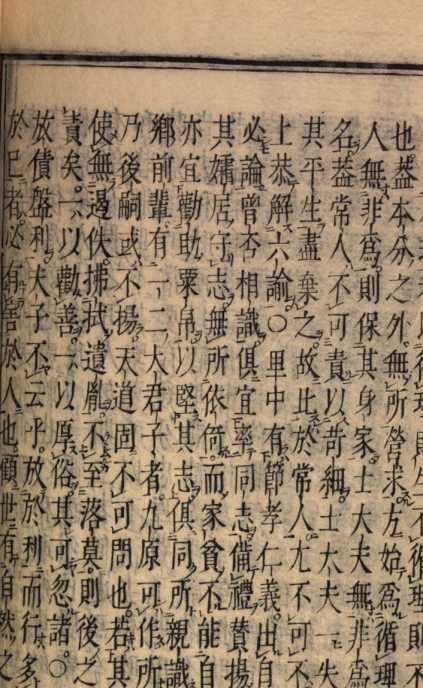 循理則生不循理則不
也。蓋本分之外。無所營求。方始爲循理
人無非爲。則保其身家。士大夫無非爲
名。蓋常人不可責以苛細。士大夫一失
其平生盡棄之。故比於常人。尤不可不
上恭解六諭。○里中有節孝仁義。出自
必論曾否相識。俱宜率同志備禮贊揚
其孀居守志。無所依倚。而家貧不能自
亦宜勸助粟帛。以堅其志。俱同所親識
鄉前輩。有一二大君子者。九原可作。所
乃後嗣或不揚。天道固不可問也。若其
使無過佚。拂拭遺胤。不至落莫。則後之
責矣。一以勸善。一以厚俗。其可忽諸。○
放債盤利。夫子不云乎。放於利而行多
於己者。必有害於人也。顧世有自然之